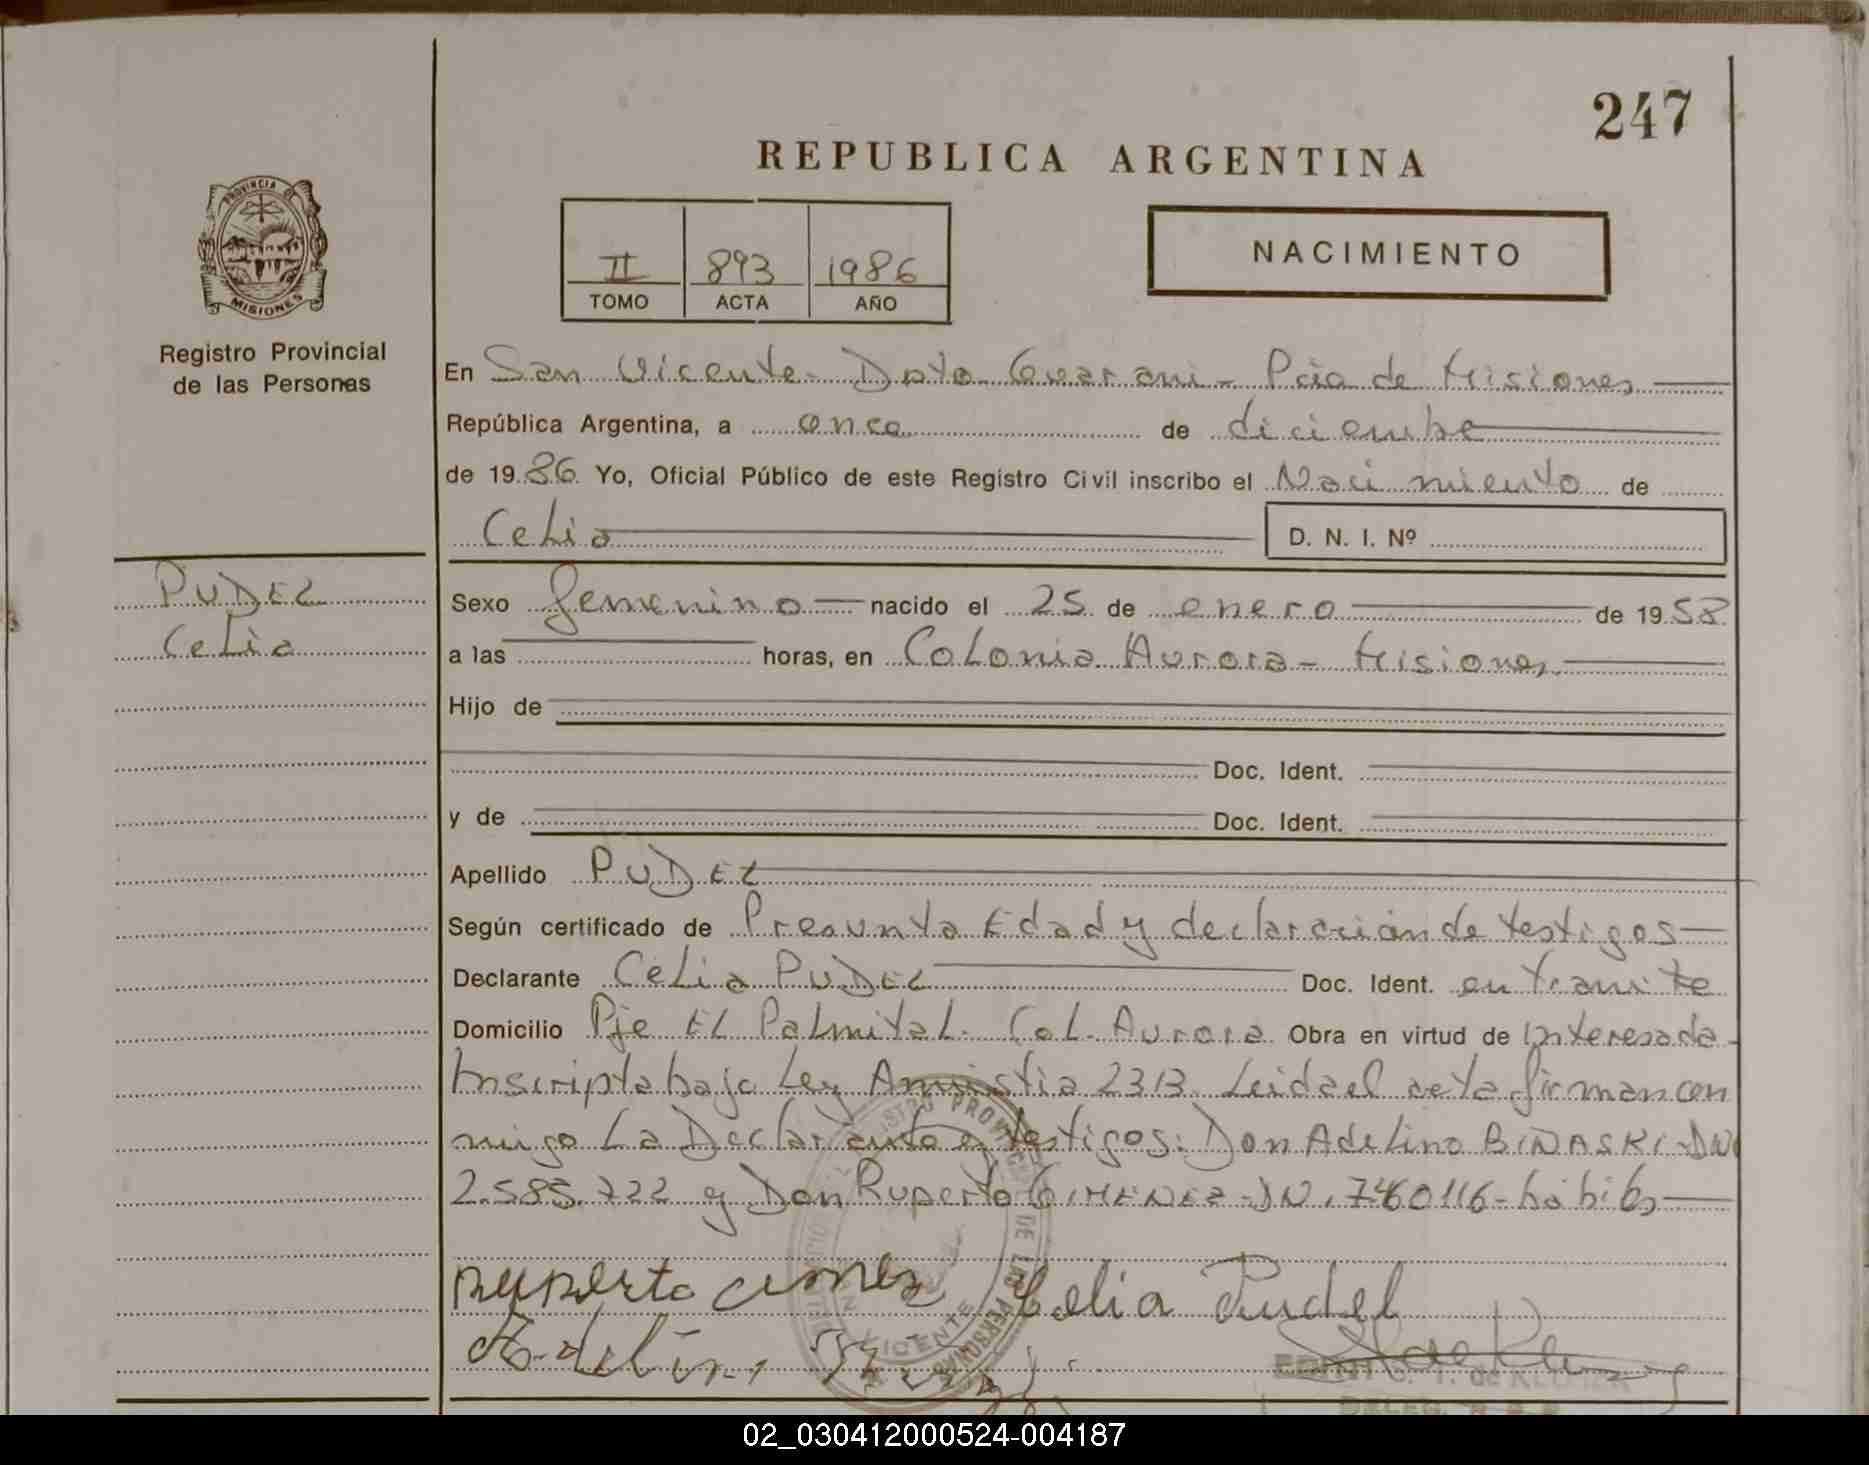 247
REPUBLICA ARGENTINA
PROVINCIA DE
MISIONES
II 893 1986
TOMO ACTA AÑO
NACIMIENTO
Registro Provincial
de las Personas
En San Vicente - Dpto Guarani - Pcia de Misiones
República Argentina, a once de diciembre
de 1986 Yo, Oficial Público de este Registro Civil inscribo el Nacimiento de
Celia D. N. I. Nº
PUDEL
Celia
Sexo femenino nacido el 25 de enero de 1958
a las horas, en Colonia Aurora - Misiones
Hijo de
Doc. Ident.
y de Doc. Ident.
Apellido PUDEL
Según certificado de Presunta Edad y declaración de testigos
Declarante Celia PUDEL Doc. Ident. en tramite
Domicilio Pje EL Palmital - Col. Aurora Obra en virtud de Interesada
Inscripta bajo Ley Amnistia 2313. Leida el acta firman con
migo La Declarante y testigos: Don Adelino BINASKI - DNI
2.585.722 y Don Ruperto GIMENEZ - DN. 7460116 - hábiles
Ruperto Celia Pudel
02_030412000524-004187